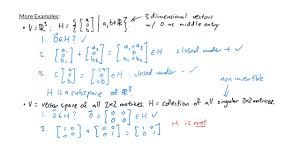 More Examples:
• V = ℝ³. H = { [a 0 b] | a, b ∈ ℝ } ← 3 dimensional vectors w/ 0 as middle entry
1. 0⃗ ∈ H? ✓
2. [a₁ 0 b₁] + [a₂ 0 b₂] = [a₁+a₂ 0 b₁+b₂] ∈ H closed under + ✓
3. c[a 0 b] = [ca 0 cb] ∈ H closed under · ✓
H is a subspace of ℝ³
non invertible
• V = vector space of all 2x2 matrices, H = collection of all singular 2x2 matrices.
1. 0⃗ ∈ H? 0⃗ = [0 0 0 0] ∈ H ✓
2. [1 0 0 0] + [0 0 0 1] = [1 0 0 1] ∉ H H is not